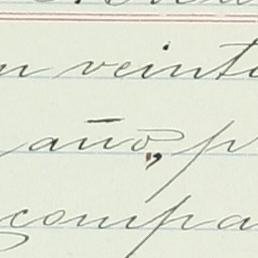 n veint
año, p
compa